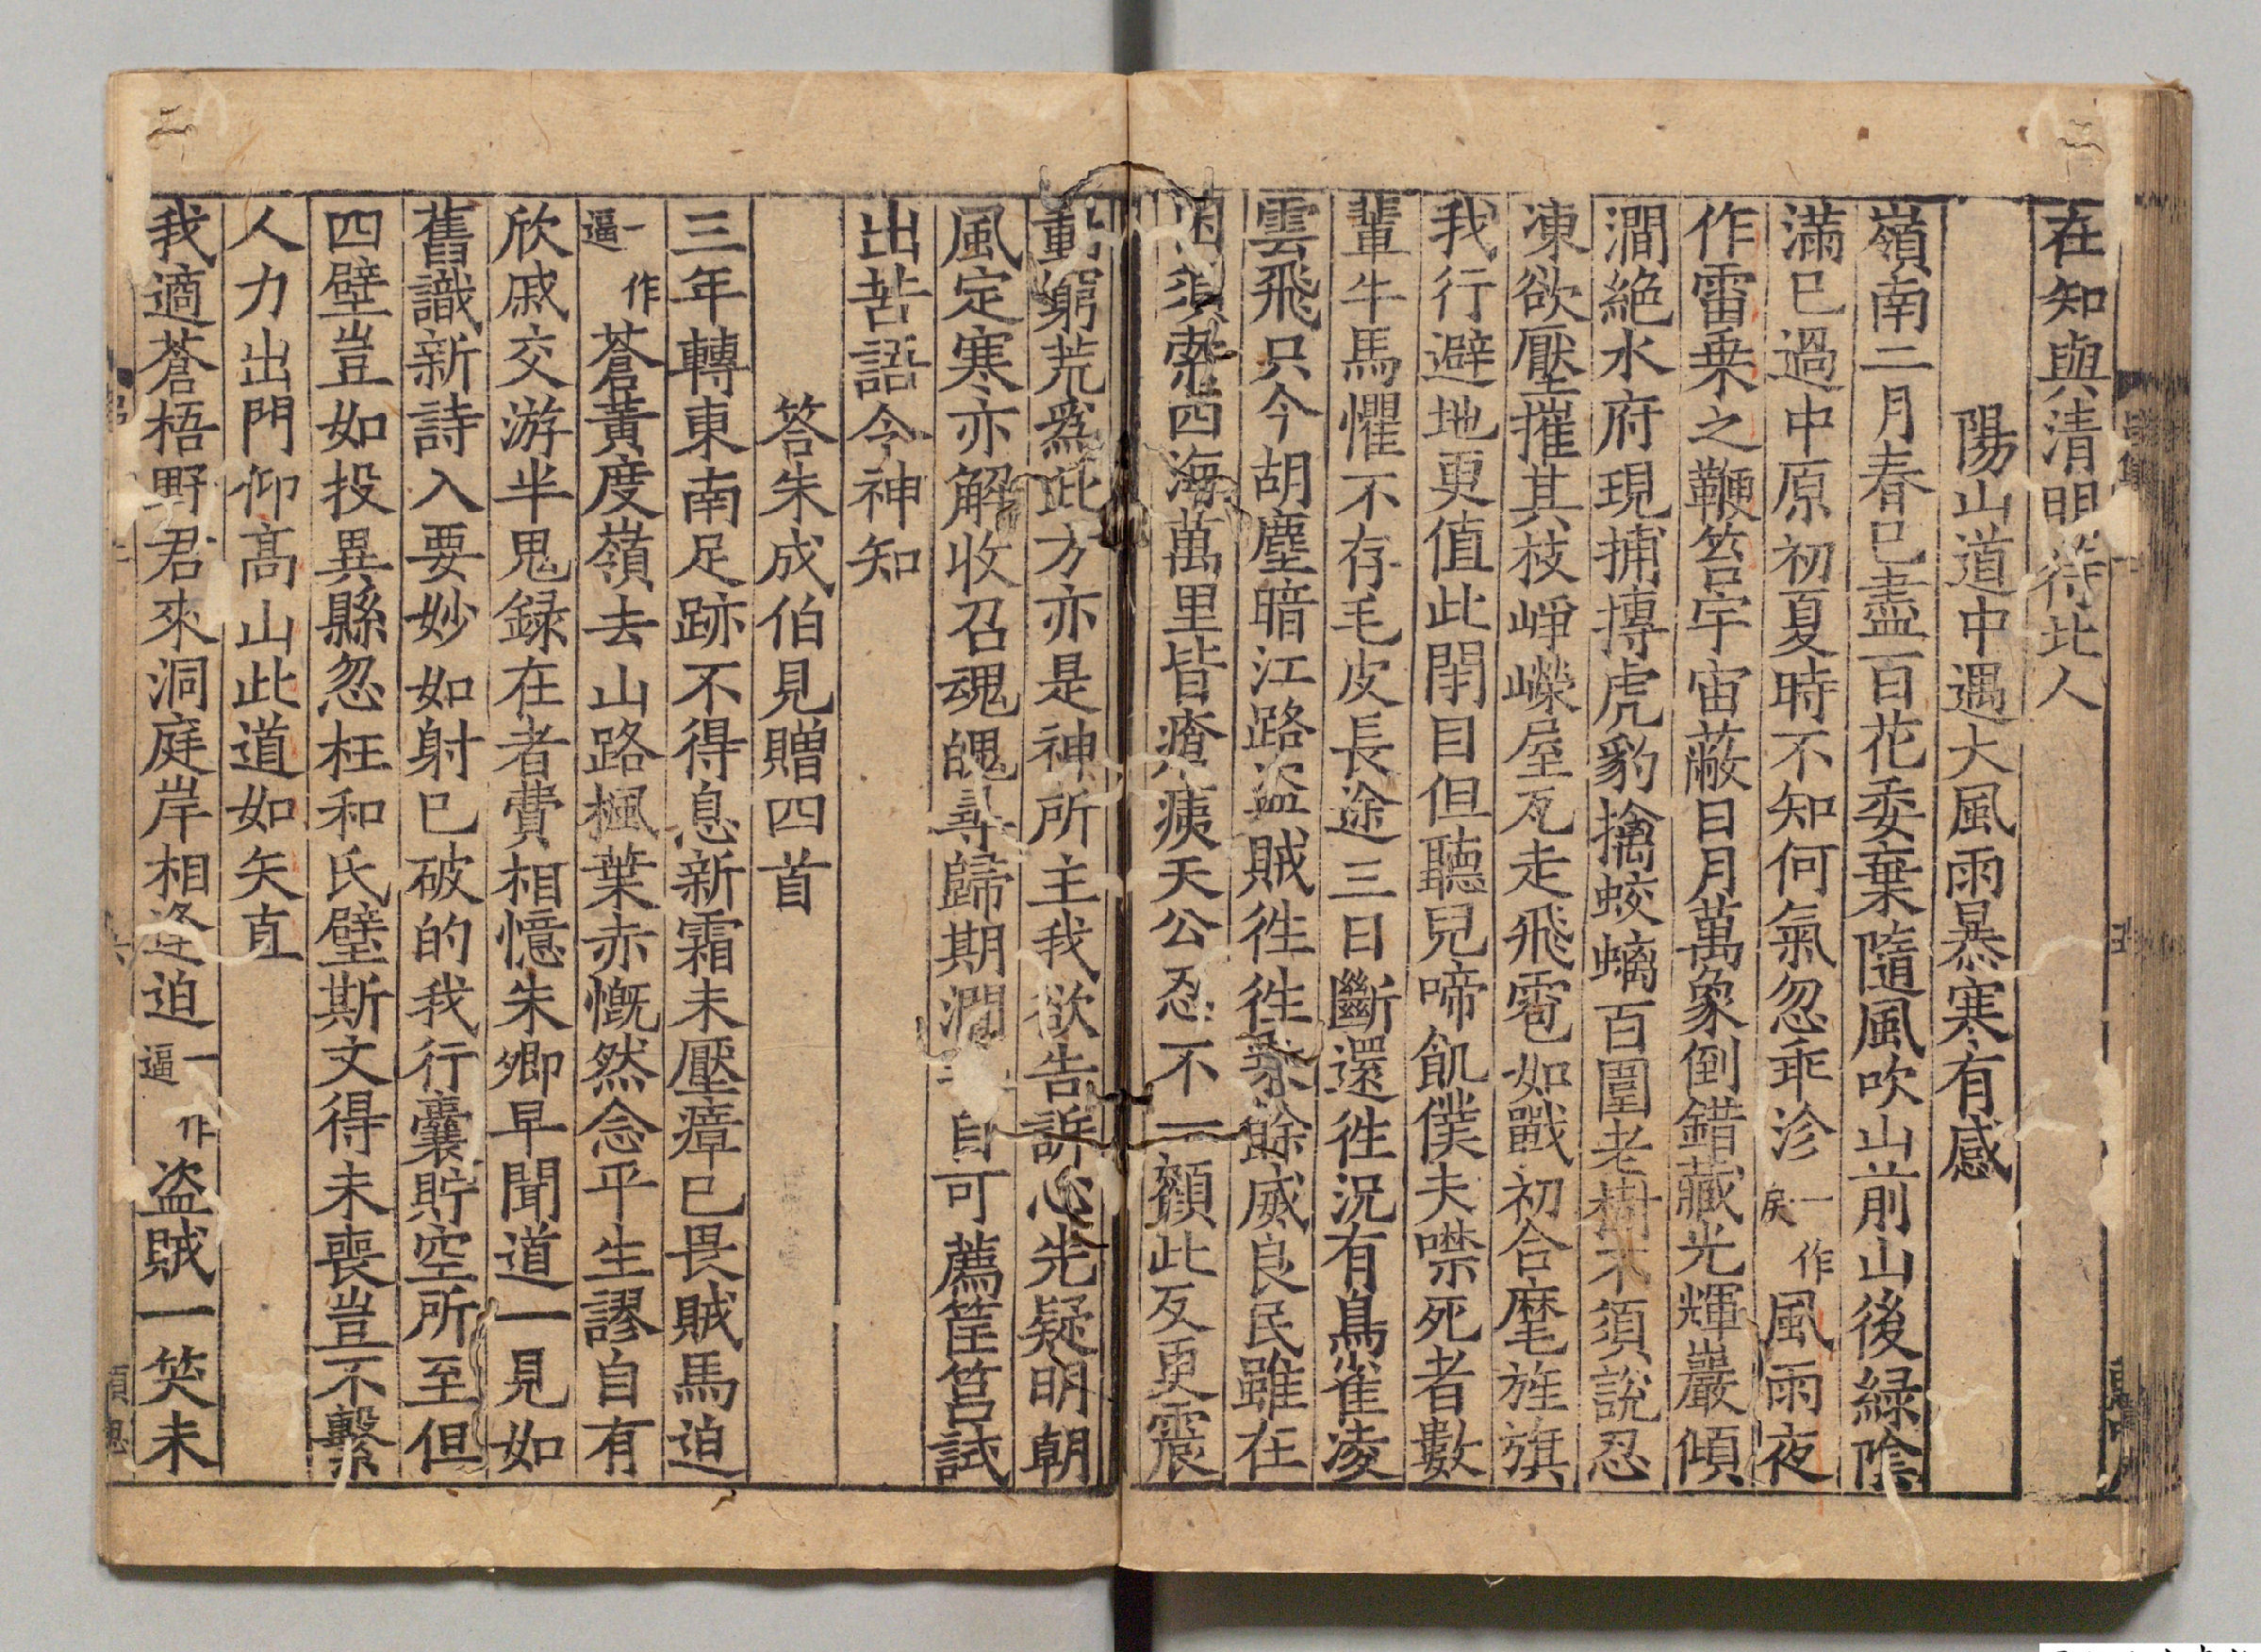 在知與清明待此人
陽山道中遇大風雨暴寒有感
嶺南二月春已盡百花委棄隨風吹山前山後緑陰
滿已過中原初夏時不知何氣忽乖沴一作戾風雨夜
作雷乗之鞭笞宇宙蔽日月萬象倒錯藏光輝巖傾
澗絶水府現捕搏虎豹擒蛟螭百圍老樹不須說忍
凍欲壓摧其枝崢嶸屋瓦走飛雹如戰初合麾旌旗
我行避地更值此閉目但聽兒啼飢僕夫噤死者數
輩牛馬懼不存毛皮長途三日斷還徃況有鳥雀凌
雲飛只今胡塵暗江路盗賊徃徃餘威良民雖在
困須索四海萬里皆瘡痍天公忍不一顧此反更震
動窮荒爲此方亦是神所主我欲告訴心先疑明朝
風定寒亦解收召魂魄尋歸期澗自可薦筐筥試
出苦語令神知
答朱成伯見贈四首
三年轉東南足跡不得息新霜未壓瘴已畏賊馬迫
一作逼蒼黄度嶺去山路楓葉赤慨然念平生謬自有
欣戚交游半鬼録在者費相憶朱卿早聞道一見如
舊識新詩入要妙如射已破的我行囊貯空所至但
四壁豈如投異縣忽枉和氏璧斯文得未喪豈不繫
人力出門仰高山此道如矢直
我適蒼梧野君來洞庭岸相逢迫一作逼盗賊一笑未